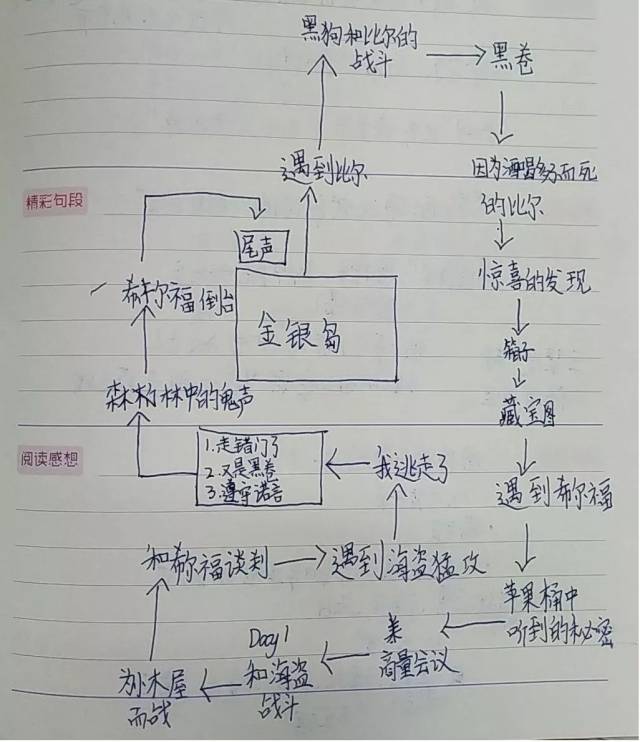 黑狗和比尔的
战斗
黑卷
遇到比尔
因为酒喝多了而死
的比尔
精彩句段
尾声
惊喜的发现
希尔福倒台
金银岛
箱子
森林的林中的鬼声
藏宝图
阅读感想
1.走错门了
2.又是黑卷
3.遵守诺言
我逃走了
遇到希尔福
和希尔福谈判
遇到海盗猛攻
苹果桶中
听到的秘密
Day1
和海盗
战斗
商量会议
为小木屋
而战